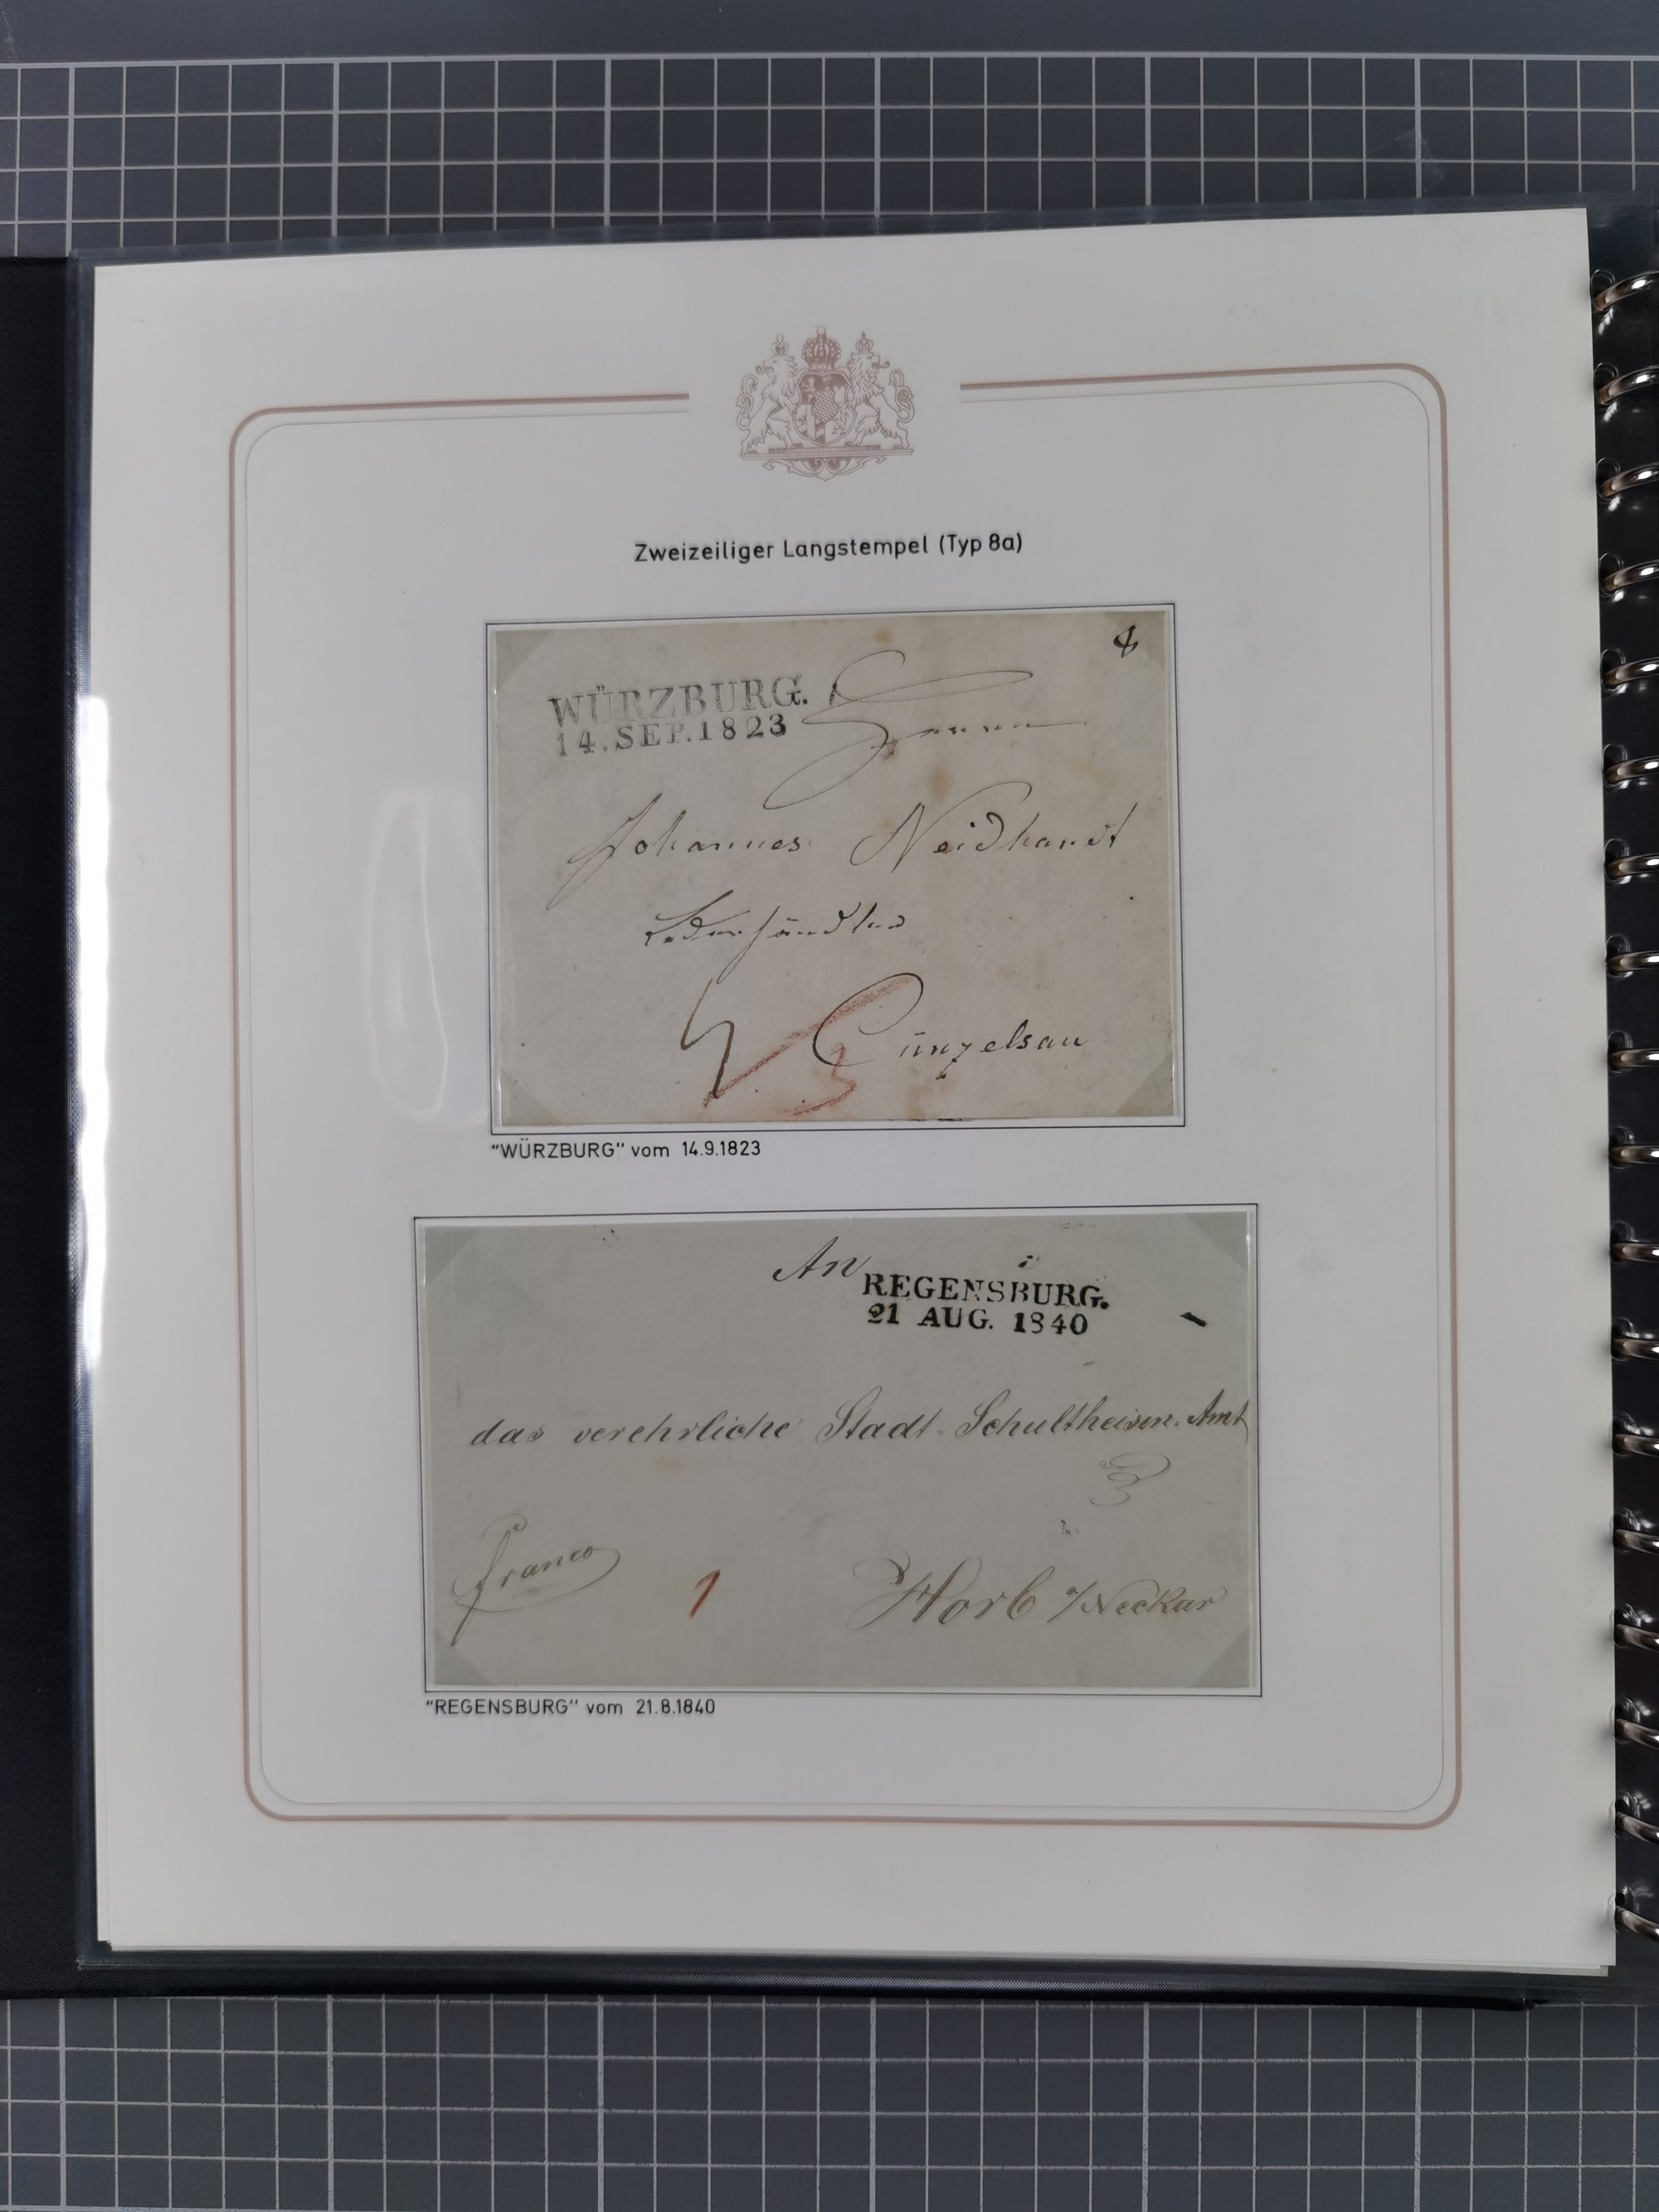 Zweizeiliger Langstempel (Typ 8a)
8
WÜRZBURG.
14.SEP.1823
Herrn
Johannes Neidhardt
Lederhändler
Cünzelsau
3
"WÜRZBURG" vom 14.9.1823
An
REGENSBURG.
21 AUG. 1840
das verehrliche Stadt-Schultheisen-Amt
franco
1
Horb a/Neckar
"REGENSBURG" vom 21.8.1840